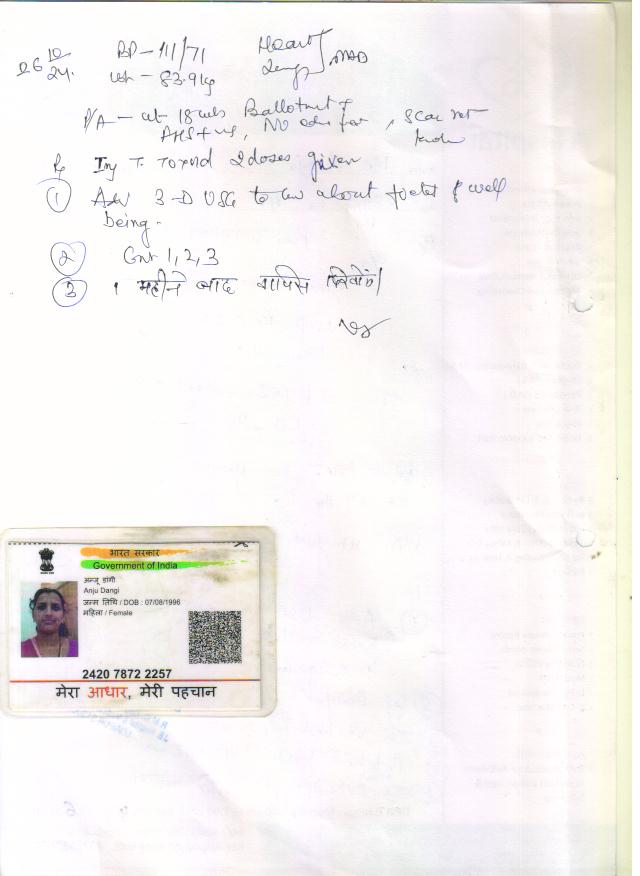 26 10/24.
BP - 111/71
Wt - 83.9 kg
Heart
Lungs } NAD
P/A - ut 18 wks Ballotment +
FHS + , No , scar not
tender
Rx Inj T. Toxoid 2 doses given
① Adv 3-D USG to about foetal well
being.
② Cont 1, 2, 3
③ १ महीने बाद वापिस दिखायें।
भारत सरकार
Government of India
अन्जू डांगी
Anju Dangi
जन्म तिथि / DOB : 07/08/1996
महिला / Female
2420 7872 2257
मेरा आधार, मेरी पहचान